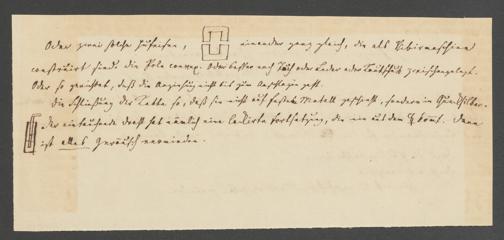 Oder zwei solche Hufeisen, einander ganz gleich, die als Vibrirmaschine
construirt sind. die Pole convex. Oder besser noch Tuch oder Leder oder Kautschuk zwischengelegt.
Oder so gerichtet, daß die Anziehung nicht bis zum Anschlagen geht.
Die Schließung der Kette so, daß sie nicht auf festem Metall geschieht, sondern in Quecksilber.
Der eintauchende Draht hat nämlich eine Fortsetzung, die nie aus dem ☿ kommt. Dann
ist alles Geräusch vermieden.